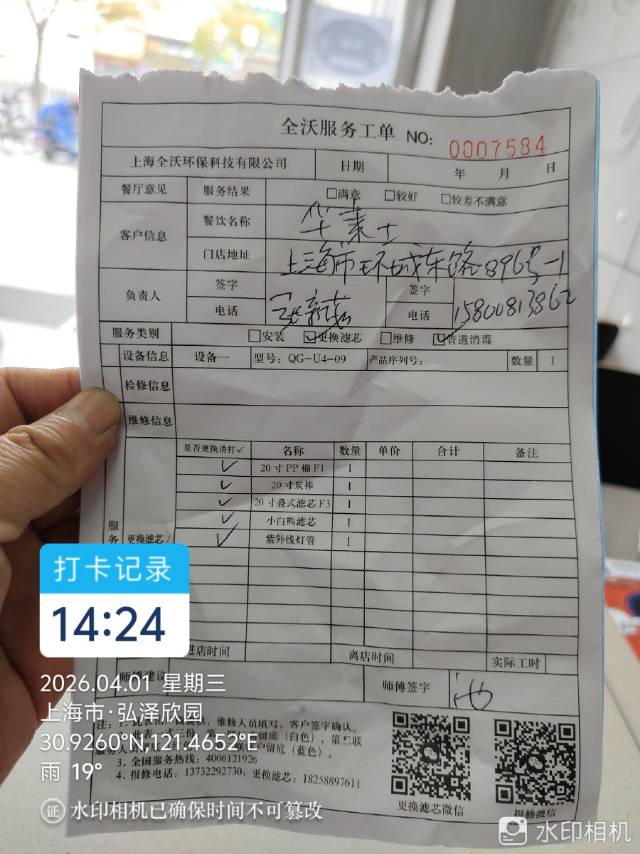 全沃服务工单 NO: 0007584
上海全沃环保科技有限公司 日期 年 月 日
餐厅意见 服务结果 □满意 □较好 □较差不满意
客户信息 餐饮名称 华莱士
门店地址 上海市环城东路896号-1
负责人 签字 签字
电话 电话 15800813862
服务类别 □安装 ☑更换滤芯 □维修 ☑管道消毒
设备信息 设备一 型号: QG-U4-09 产品序列号: 数量 1
检修信息
维修信息
是否更换请打✓ 名称 数量 单价 合计 备注
✓ 20寸PP棉F1 1
✓ 20寸炭棒 1
✓ 20寸叠式滤芯F3 1
✓ 小白熊滤芯 1
✓ 紫外线灯管 1
服务
更换滤芯/
进店时间 离店时间 实际工时
师傅建议 师傅签字
维修人员填写，客户签字确认。
留底（白色），第二联
留底（蓝色）。
3. 全国服务热线: 4006121926
4. 报修电话: 13732292730, 更换滤芯: 18258897611
更换滤芯微信 报修微信
打卡记录
14:24
2026.04.01 星期三
上海市·弘泽欣园
30.9260°N,121.4652°E
雨 19°
证 水印相机已确保时间不可篡改
水印相机